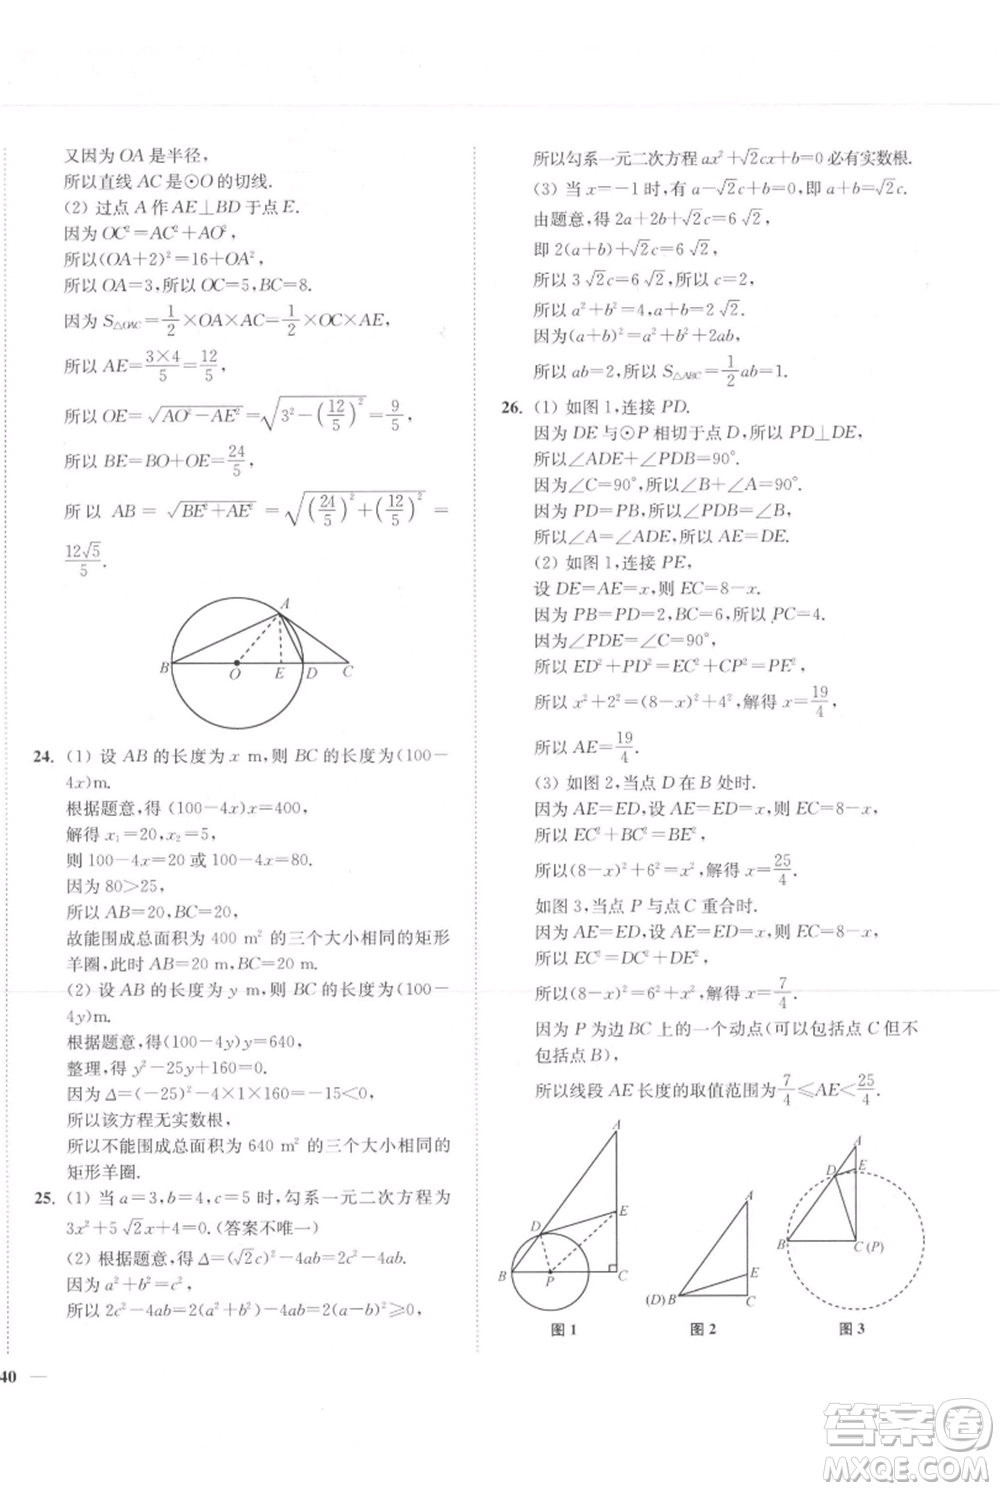 又因为 OA 是半径,
所以直线 AC 是⊙O 的切线.
(2) 过点 A 作 AE⊥BD 于点 E.
因为 OC²=AC²+AO²,
所以(OA+2)²=16+OA²,
所以 OA=3,所以 OC=5,BC=8.
因为 S△OAC=1/2×OA×AC=1/2×OC×AE,
所以 AE=(3×4)/5=12/5,
所以 OE=√(AO²-AE²)=√(3²-(12/5)²)=9/5,
所以 BE=BO+OE=24/5,
所以 AB=√(BE²+AE²)=√((24/5)²+(12/5)²)=
12√5/5.
A
B
O
E
D
C
24. (1) 设 AB 的长度为 x m,则 BC 的长度为(100-
4x)m.
根据题意,得 (100-4x)x=400,
解得 x₁=20,x₂=5,
则 100-4x=20 或 100-4x=80.
因为 80>25,
所以 AB=20,BC=20,
故能围成总面积为 400 m² 的三个大小相同的矩形
羊圈,此时 AB=20 m,BC=20 m.
(2) 设 AB 的长度为 y m,则 BC 的长度为(100-
4y)m.
根据题意,得(100-4y)y=640,
整理,得 y²-25y+160=0.
因为 Δ=(-25)²-4×1×160=-15<0,
所以该方程无实数根,
所以不能围成总面积为 640 m² 的三个大小相同的
矩形羊圈.
25. (1) 当 a=3,b=4,c=5 时,勾系一元二次方程为
3x²+5√2x+4=0.(答案不唯一)
(2) 根据题意,得 Δ=(√2c)²-4ab=2c²-4ab.
因为 a²+b²=c²,
所以 2c²-4ab=2(a²+b²)-4ab=2(a-b)²≥0,
40
所以勾系一元二次方程 ax²+√2cx+b=0 必有实数根.
(3) 当 x=-1 时,有 a-√2c+b=0,即 a+b=√2c.
由题意,得 2a+2b+√2c=6√2,
即 2(a+b)+√2c=6√2,
所以 3√2c=6√2,所以 c=2,
所以 a²+b²=4,a+b=2√2.
因为(a+b)²=a²+b²+2ab,
所以 ab=2,所以 S△ABC=1/2ab=1.
26. (1) 如图 1,连接 PD.
因为 DE 与⊙P 相切于点 D,所以 PD⊥DE,
所以∠ADE+∠PDB=90°.
因为∠C=90°,所以∠B+∠A=90°.
因为 PD=PB,所以∠PDB=∠B,
所以∠A=∠ADE,所以 AE=DE.
(2) 如图 1,连接 PE,
设 DE=AE=x,则 EC=8-x.
因为 PB=PD=2,BC=6,所以 PC=4.
因为∠PDE=∠C=90°,
所以 ED²+PD²=EC²+CP²=PE²,
所以 x²+2²=(8-x)²+4²,解得 x=19/4,
所以 AE=19/4.
(3) 如图 2,当点 D 在 B 处时.
因为 AE=ED,设 AE=ED=x,则 EC=8-x,
所以 EC²+BC²=BE²,
所以(8-x)²+6²=x²,解得 x=25/4.
如图 3,当点 P 与点 C 重合时.
因为 AE=ED,设 AE=ED=x,则 EC=8-x,
所以 EC²=DC²+DE²,
所以(8-x)²=6²+x²,解得 x=7/4.
因为 P 为边 BC 上的一个动点(可以包括点 C 但不
包括点 B),
所以线段 AE 长度的取值范围为7/4≤AE<25/4.
A
D
E
B
P
C
图 1
A
E
(D)B
C
图 2
A
D
E
B
C(P)
图 3
答案圈
MXQE.COM